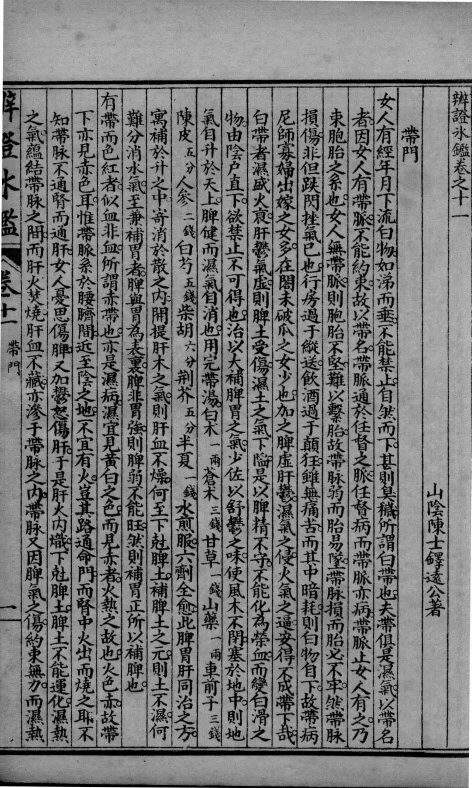 辨證氷鑑卷之十一
山陰陳士鐸遠公著
帶門
女人有經年月下流白物如涕而𠂹不能禁止自然而下甚則臭穢所謂白帶也夫帶俱是濕氣以帶名
者因女人有帶脈不能約束故以帶名帶脈通於任督之脈任督病而帶脈亦病帶脈止女人有之乃
束胞胎之系也女人無帶脈則胞胎不堅難以繫胎故帶脈弱而胎易墜帶脈損而胎必不牢然帶脈
損傷非但跌閃挫氣已也行房過于縱送飲酒過于顛狂雖無痛苦而其中暗耗則白物自下故帶病
尼師寡婦出嫁之女多在閨未破瓜之女少也加之脾虛肝鬱濕氣之侵火氣之逼安得不成帶下哉
白帶者濕盛火衰肝鬱氣虛則脾土受傷濕土之氣下陷是以脾精不守不能化為榮血而變白滑之
物由陰戶直下欲禁止不可得也治以大補脾胃之氣少佐以舒鬱之味使風木不閉塞於地中則地
氣自升於天上脾健而濕氣自消也用完帶湯白朮一兩蒼朮三錢甘草一錢山藥一兩車前子三錢
陳皮五分人參二錢白芍五錢柴胡六分荊芥五分半夏一錢水煎服六劑全愈此脾胃肝同治之方
寓補於升之中寄消於散之內開提肝木之氣則肝血不燥何至下尅脾土補脾土之元則土不濕何
難分消水氣至兼補胃者脾與胃為表裏脾非胃強則脾弱不能旺然則補胃正所以補脾也
有帶而色紅者似血非血所謂赤帶也亦是濕病濕宜見黃白之色而見赤者火熱之故也火色赤故帶
下亦見赤色耳惟帶脈系於腰臍間近至陰之地不宜有火豈其路通命門而腎中火出而燒之耶不
知帶脈不通腎而通肝女人憂思傷脾又加鬱怒傷肝于是肝火內熾下尅脾土脾土不能運化濕熱
之氣蘊結帶脈之間而肝火焚燒肝血不藏亦滲于帶脈之內帶脈又因脾氣之傷約束無力而濕熱
辨證氷鑑
卷十一
帶門
一